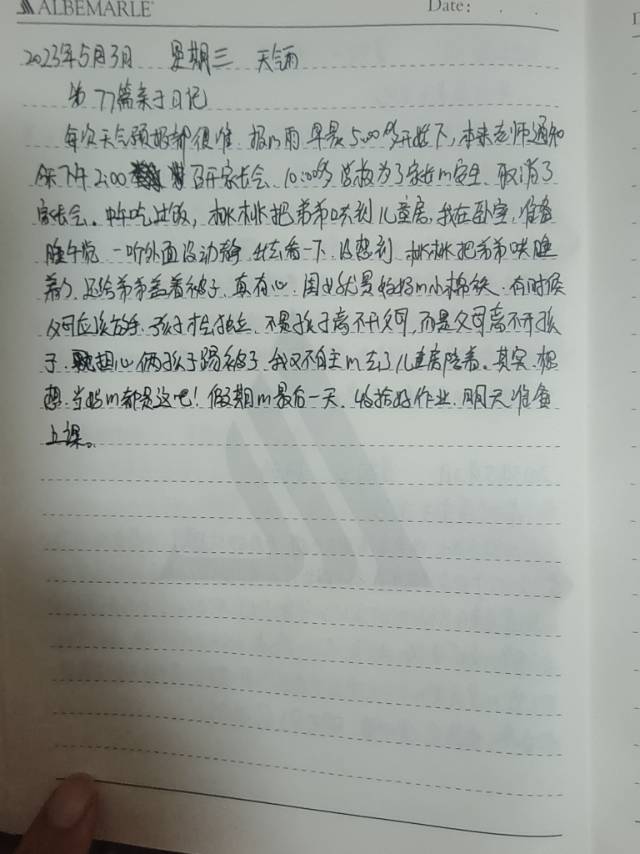 ALBEMARLE
Date:
2023年5月3日 星期三 天气雨
第77篇亲子日记
每次天气预报都很准.报的雨早晨5:00多开始下,本来老师通知
今天下午2:00 召开家长会.10:00多学校为了家长的安全.取消了
家长会。中午吃过饭,桃桃把弟弟哄到儿童房,我在卧室,准备
睡午觉 一听外面没动静 我去看一下.没想到 桃桃把弟弟哄睡
着了.还给弟弟盖着被子.真有心.闺女就是妈妈的小棉袄.有时候
父母应该放手.孩子才会独立.不是孩子离不开父母,而是父母离不开孩
子.担心俩孩子踢被子.我又不自主的去了儿童房陪着。其实.想
想.当妈的都是这吧!假期的最后一天.收拾好作业.明天准备
上课。